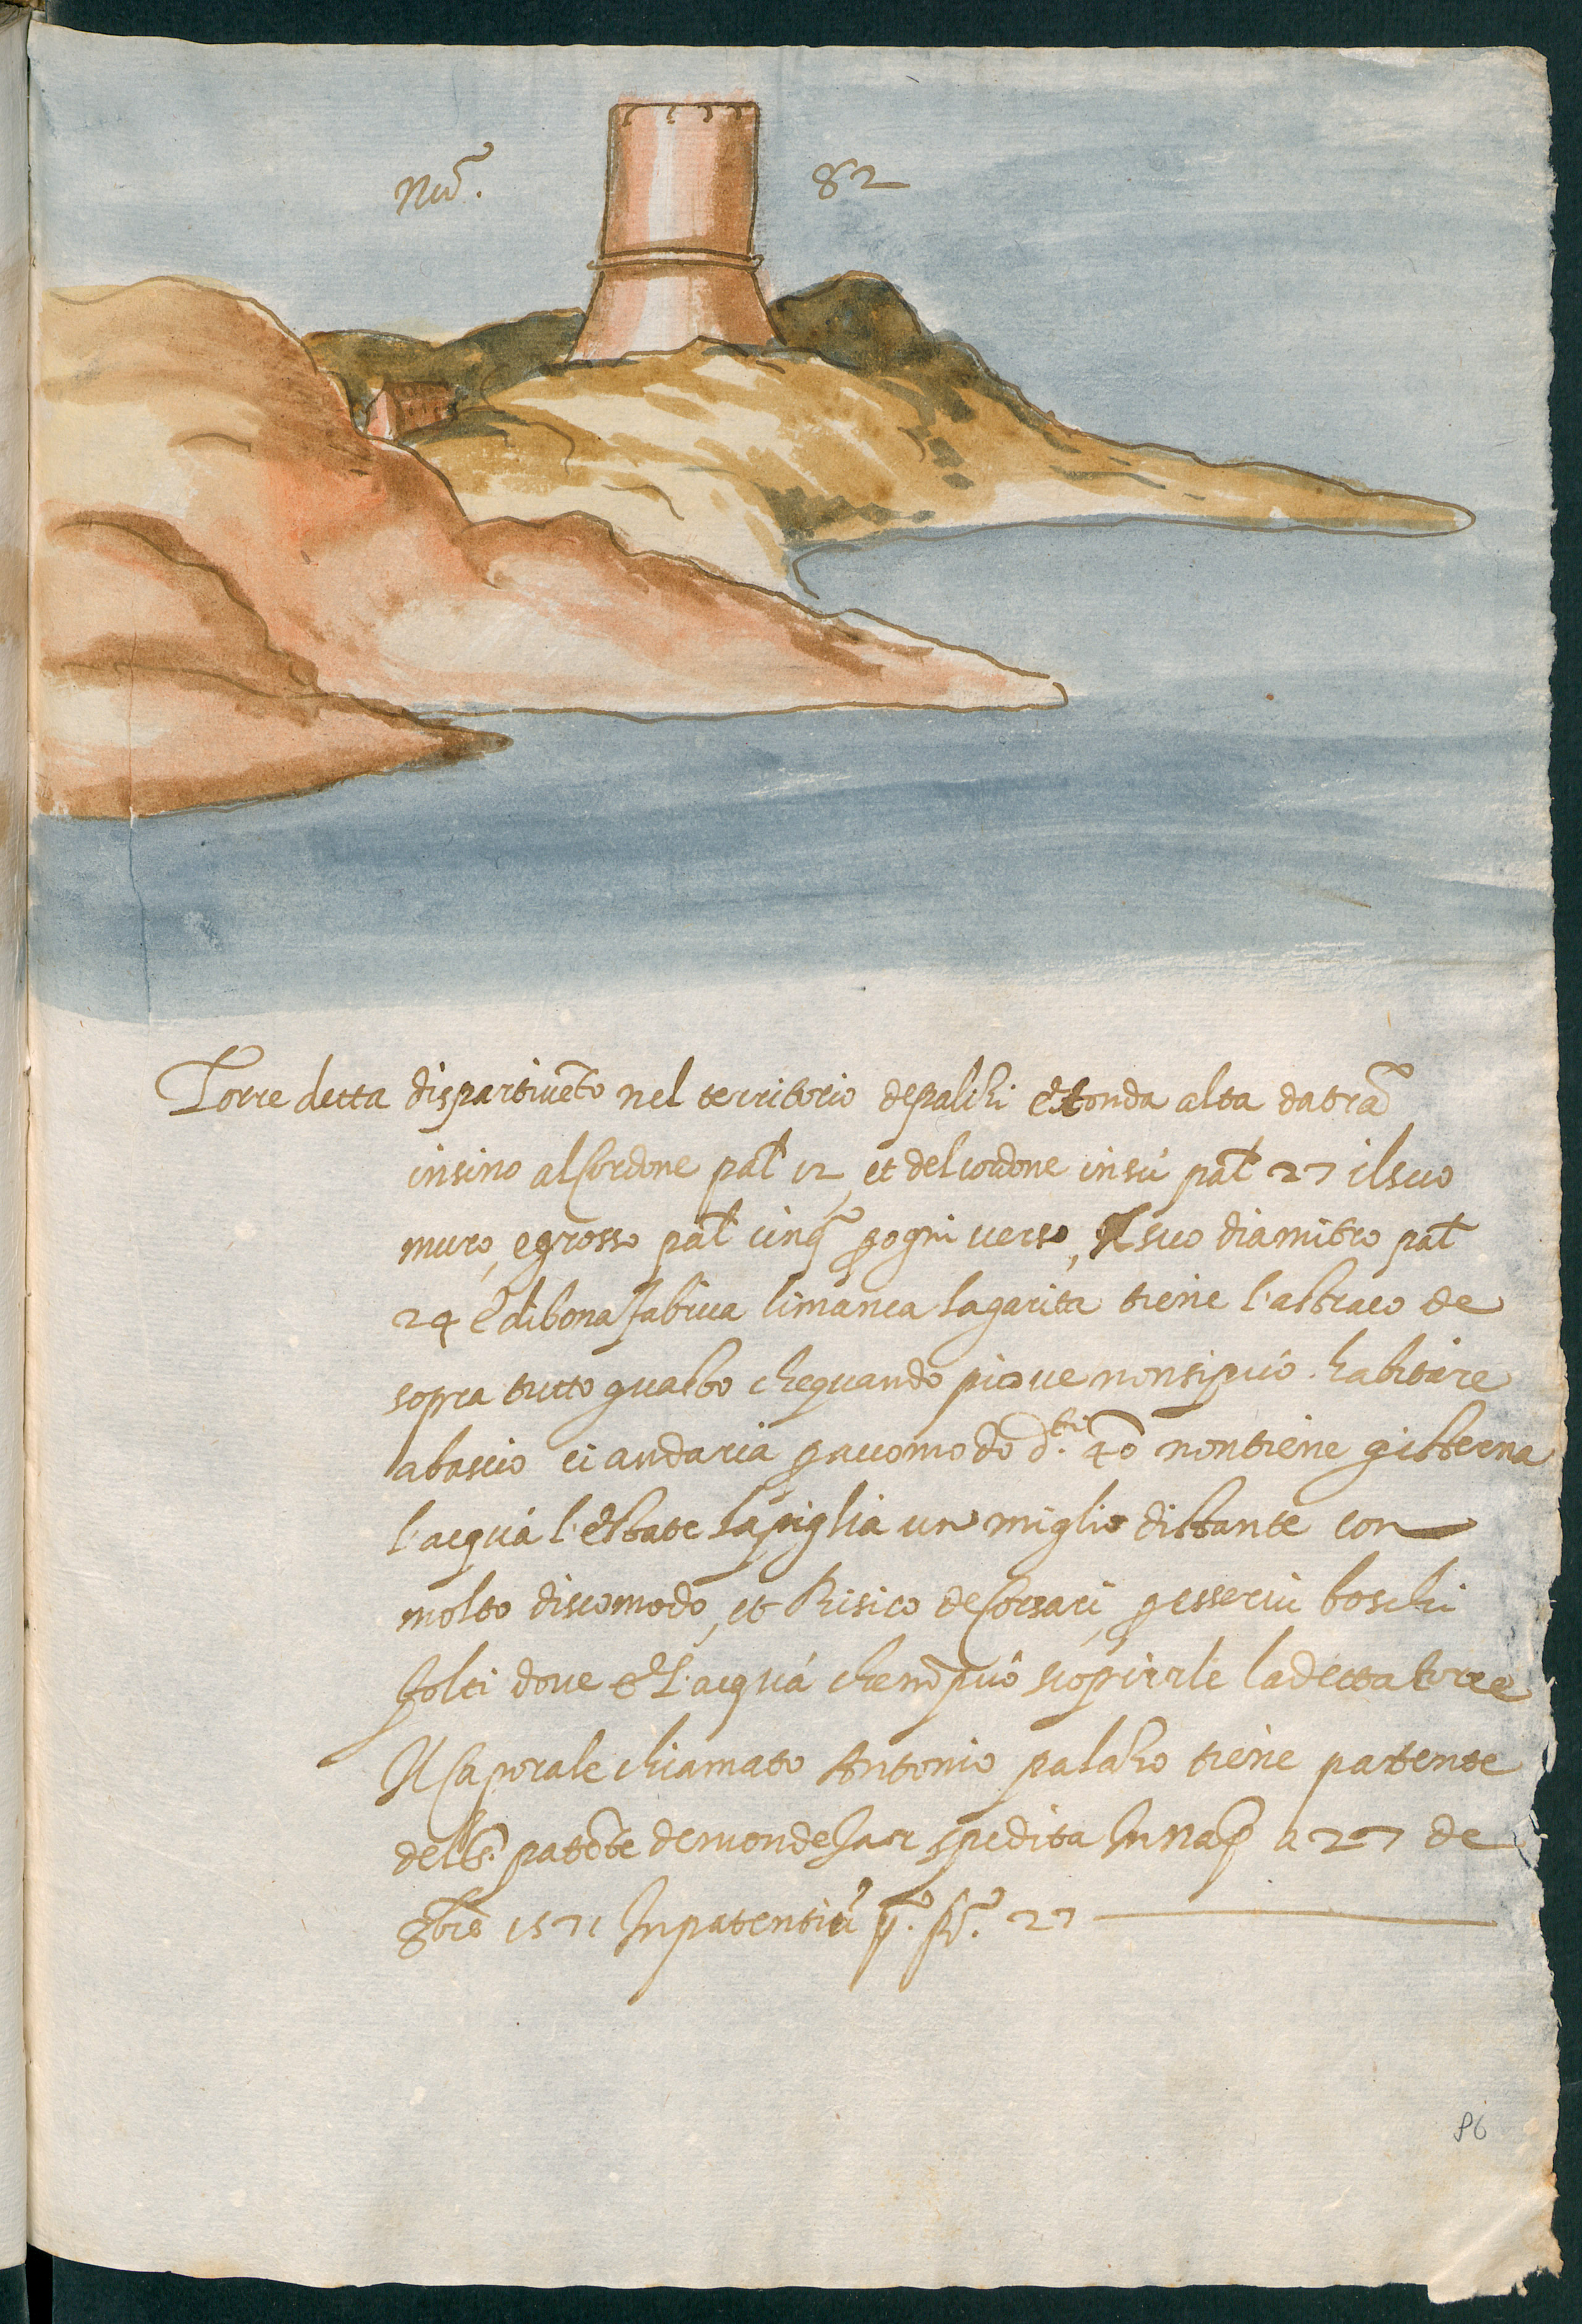 Nũ. 82
Torre detta dispartiuẽto nel territorio depalizi è tonda alta datrã
insino alcordone pal̃ 12, et delcordone insù pal̃ 27 ilsuo
muro, e grosso pal̃ cinq̃ ꝑogni uerso, Il suo diamitro pal̃
24 è dibona fabrica limanca lagarita tiene l'astraco de
sopra tutto guasto chequando pioue nonsipuò habitare
abascio ci andaria ꝑaccomodo d.ti 40 nontiene gisterna
l'acqua l'estate lapiglia un miglio distante con
molto discomodo, et Risico deCorsari, ꝑesserui boschi
folti doue è l'acqua chenõpuò scopirrle ladetta torre
Il Caporale chiamato Antonio tiene patente
dell patẽte demondesar spedita In nap̃ a 27 de
8bre 1571 Inpatentiũ 27
86